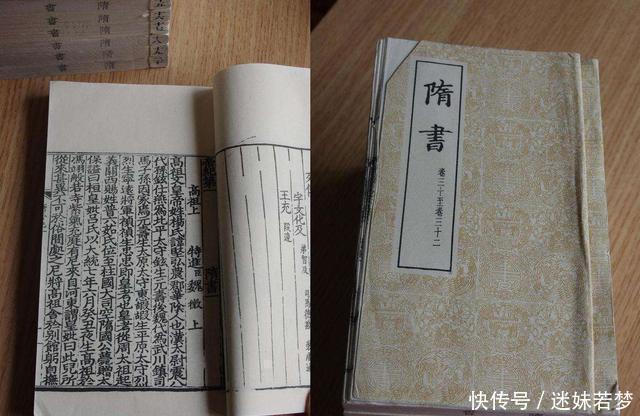 高祖上
特進臣魏徵上
隋書
高祖文皇帝姓楊氏諱堅弘農郡華陰人也漢太尉震八
代孫鉉仕燕為北平太守鉉生元壽後魏代為武川鎮司
馬子孫因家焉元壽生太原太守惠嘏嘏生平原太守烈
烈生寧遠將軍禎禎生忠忠即皇考也皇考從周太祖起
義關西賜姓普六茹氏位至柱國大司空隋國公薨贈太
保諡曰桓皇妣呂氏以大統七年六月癸丑夜生高祖於
馮翊般若寺紫氣充庭有尼來自河東謂皇妣曰此兒所
從來甚異不可於俗間處之尼將高祖舍於別館躬自撫
宇文化及 弟智及 司馬德戡
王充 段達
隋書
卷三十至卷三十二
快传号／迷妹若梦